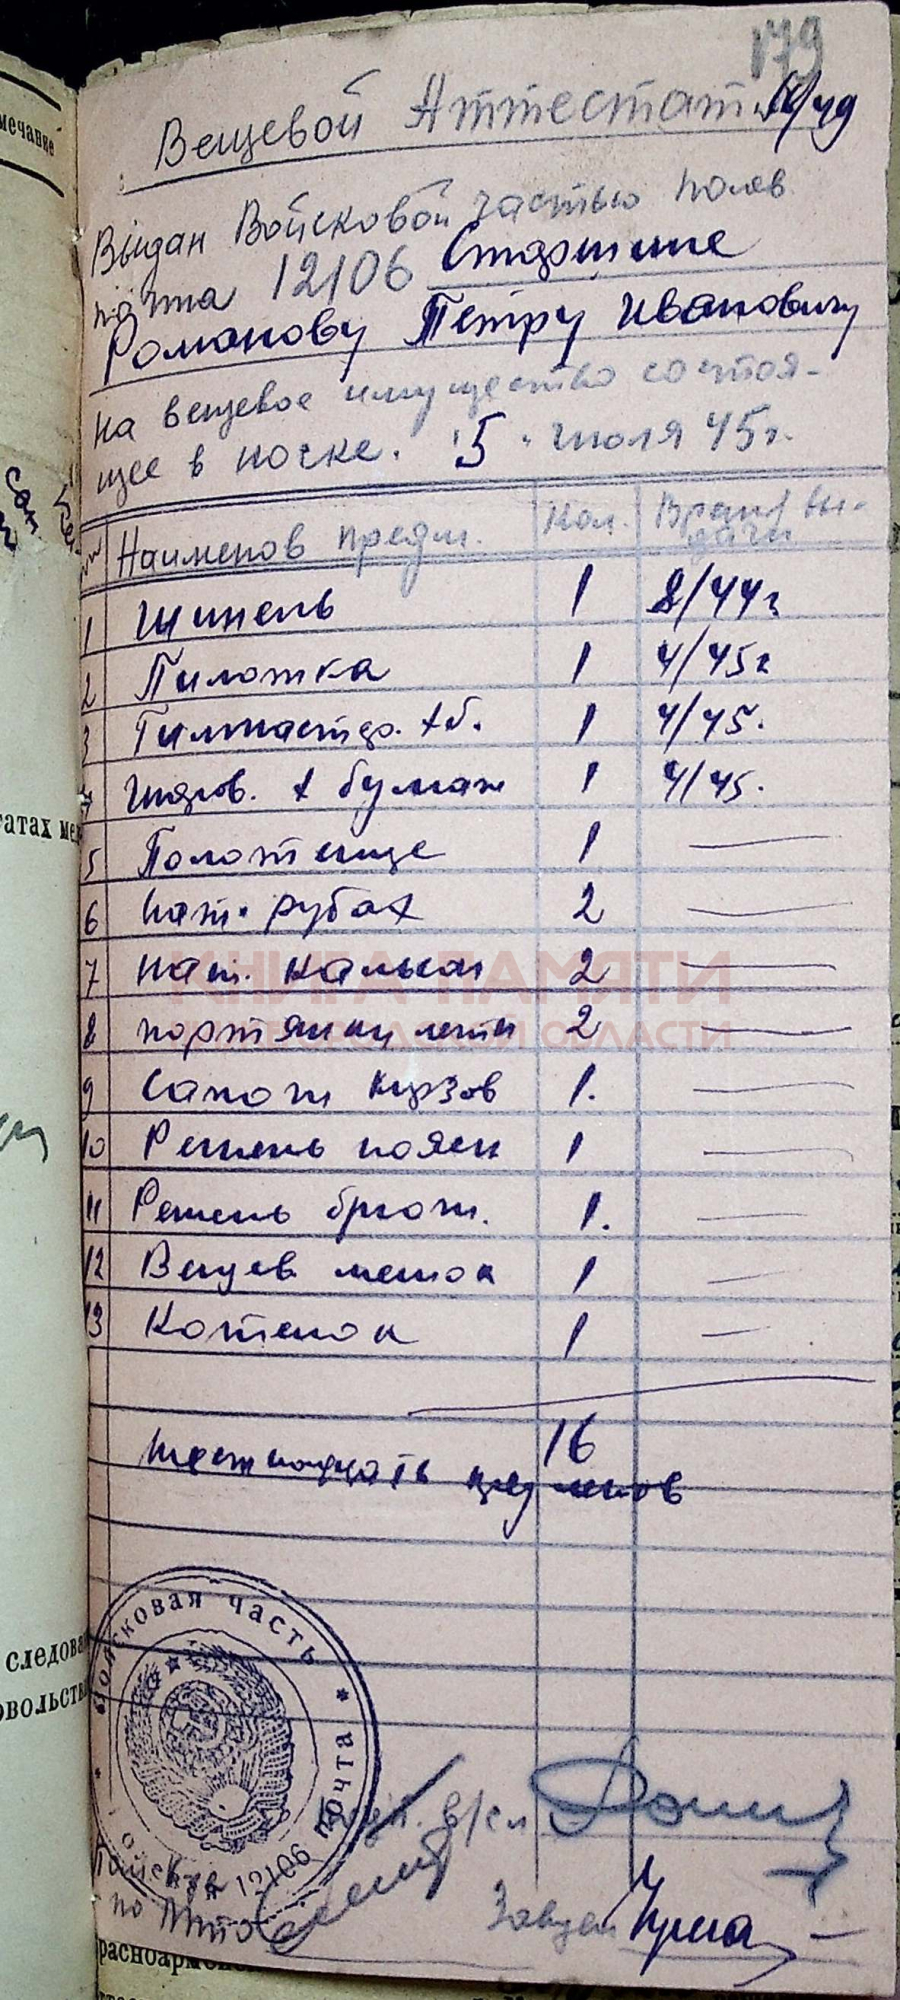 179
Вещевой Аттестат
Выдан Войсковой частью Полев.
почта 12106 Старшине
Романову Петру Ивановичу
на вещевое имущество состоя-
щее в носке. "5" июля 45г.
Наименов предм. Кол. Время вы-
дачи
1 Шинель 1 8/44г
2 Пилотка 1 4/45г
3 Гимнастер. хб. 1 4/45.
4 Шаров. х бумаж 1 4/45.
5 Полотенце 1 —
6 Нат. рубах 2 —
7 Нат. Кальсон 2 —
8 портянки летн 2 —
9 Сапоги Кирзов 1. —
10 Ремень поясн 1 —
11 Ремень брючн. 1. —
12 Вещев мешок 1 —
13 Котелок 1 —
16
шестнадцать предметов
КНИГА ПАМЯТИ
ОБЛАСТИ
Войсковая часть * Полевая почта 12106 *
в/сл
по МТО
мечание
татах
следова
овольстви
расноарм